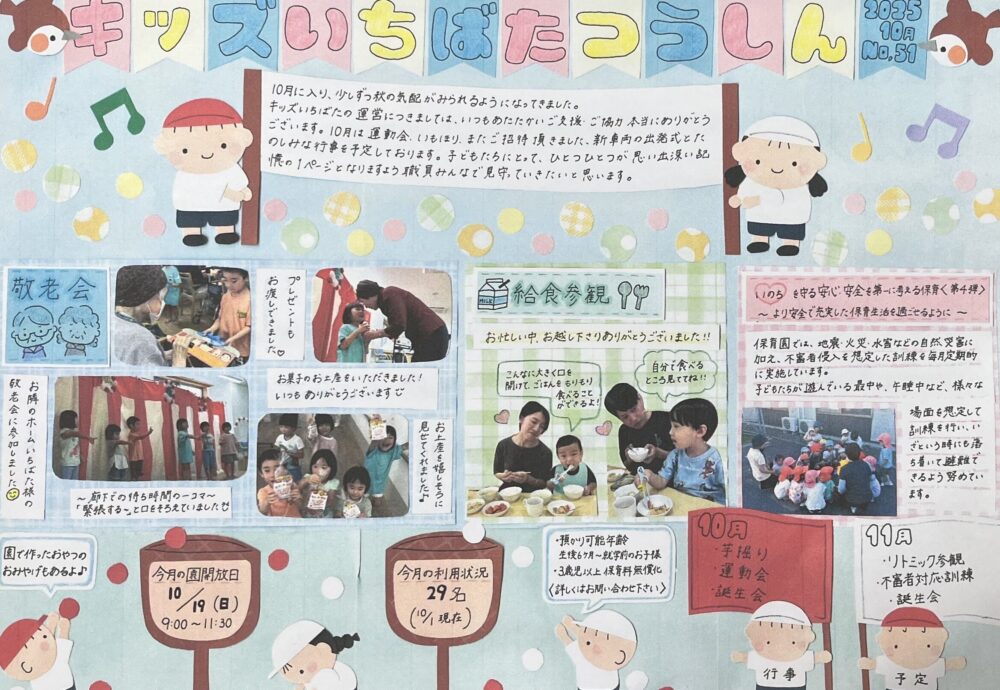 キッズいちばたつうしん
2025
10月
No.51
10月に入り、少しずつ秋の気配がみられるようになってきました。
キッズいちばたの運営につきましては、いつもあたたかいご支援・ご協力本当にありがとう
ございます。10月は運動会、いもほり、またご招待頂きました、新車両の出発式とた
のしみな行事を予定しております。子どもたちにとって、ひとつひとつが思い出深い記
憶の1ページとなりますよう職員みんなで見守っていきたいと思います。
敬老会
プレゼントも
お渡しできました♡
お隣のホームいちばた様の
敬老会に参加しました
お菓子のお土産をいただきました!
いつもありがとうございます
お土産を嬉しそうに
見せてくれました♪
〜廊下での待ち時間の一コマ〜
「緊張する〜」と口をそろえていました
MILK
給食参観
お忙しい中、お越し下さりありがとうございました!!
こんなに大きく口を
開けて、ごはんをもりもり
食べること
ができるよ!
自分で食べる
ところ見ててね!!
いのちを守る安心・安全を第一に考える保育〈第4弾〉
〜より安全で充実した保育生活を過ごせるように〜
保育園では、地震・火災・水害などの自然災害に
加え、不審者侵入を想定した訓練を毎月定期的
に実施しています。
子どもたちが遊んでいる最中や、午睡中など、様々な
場面を想定して
訓練を行い、い
ざという時にも落
ち着いて避難で
きるよう努めていま
す。
園で作ったおやつの
おみやげもあるよ♪
今月の園開放日
10/19(日)
9:00〜11:30
今月の利用状況
29名
(10/1現在)
・預かり可能年齢
生後6ヶ月〜就学前のお子様
・3歳児以上保育料無償化
〈詳しくはお問い合わせ下さい〉
10月
・芋掘り
・運動会
・誕生会
行事
11月
・リトミック参観
・不審者対応訓練
・誕生会
予定